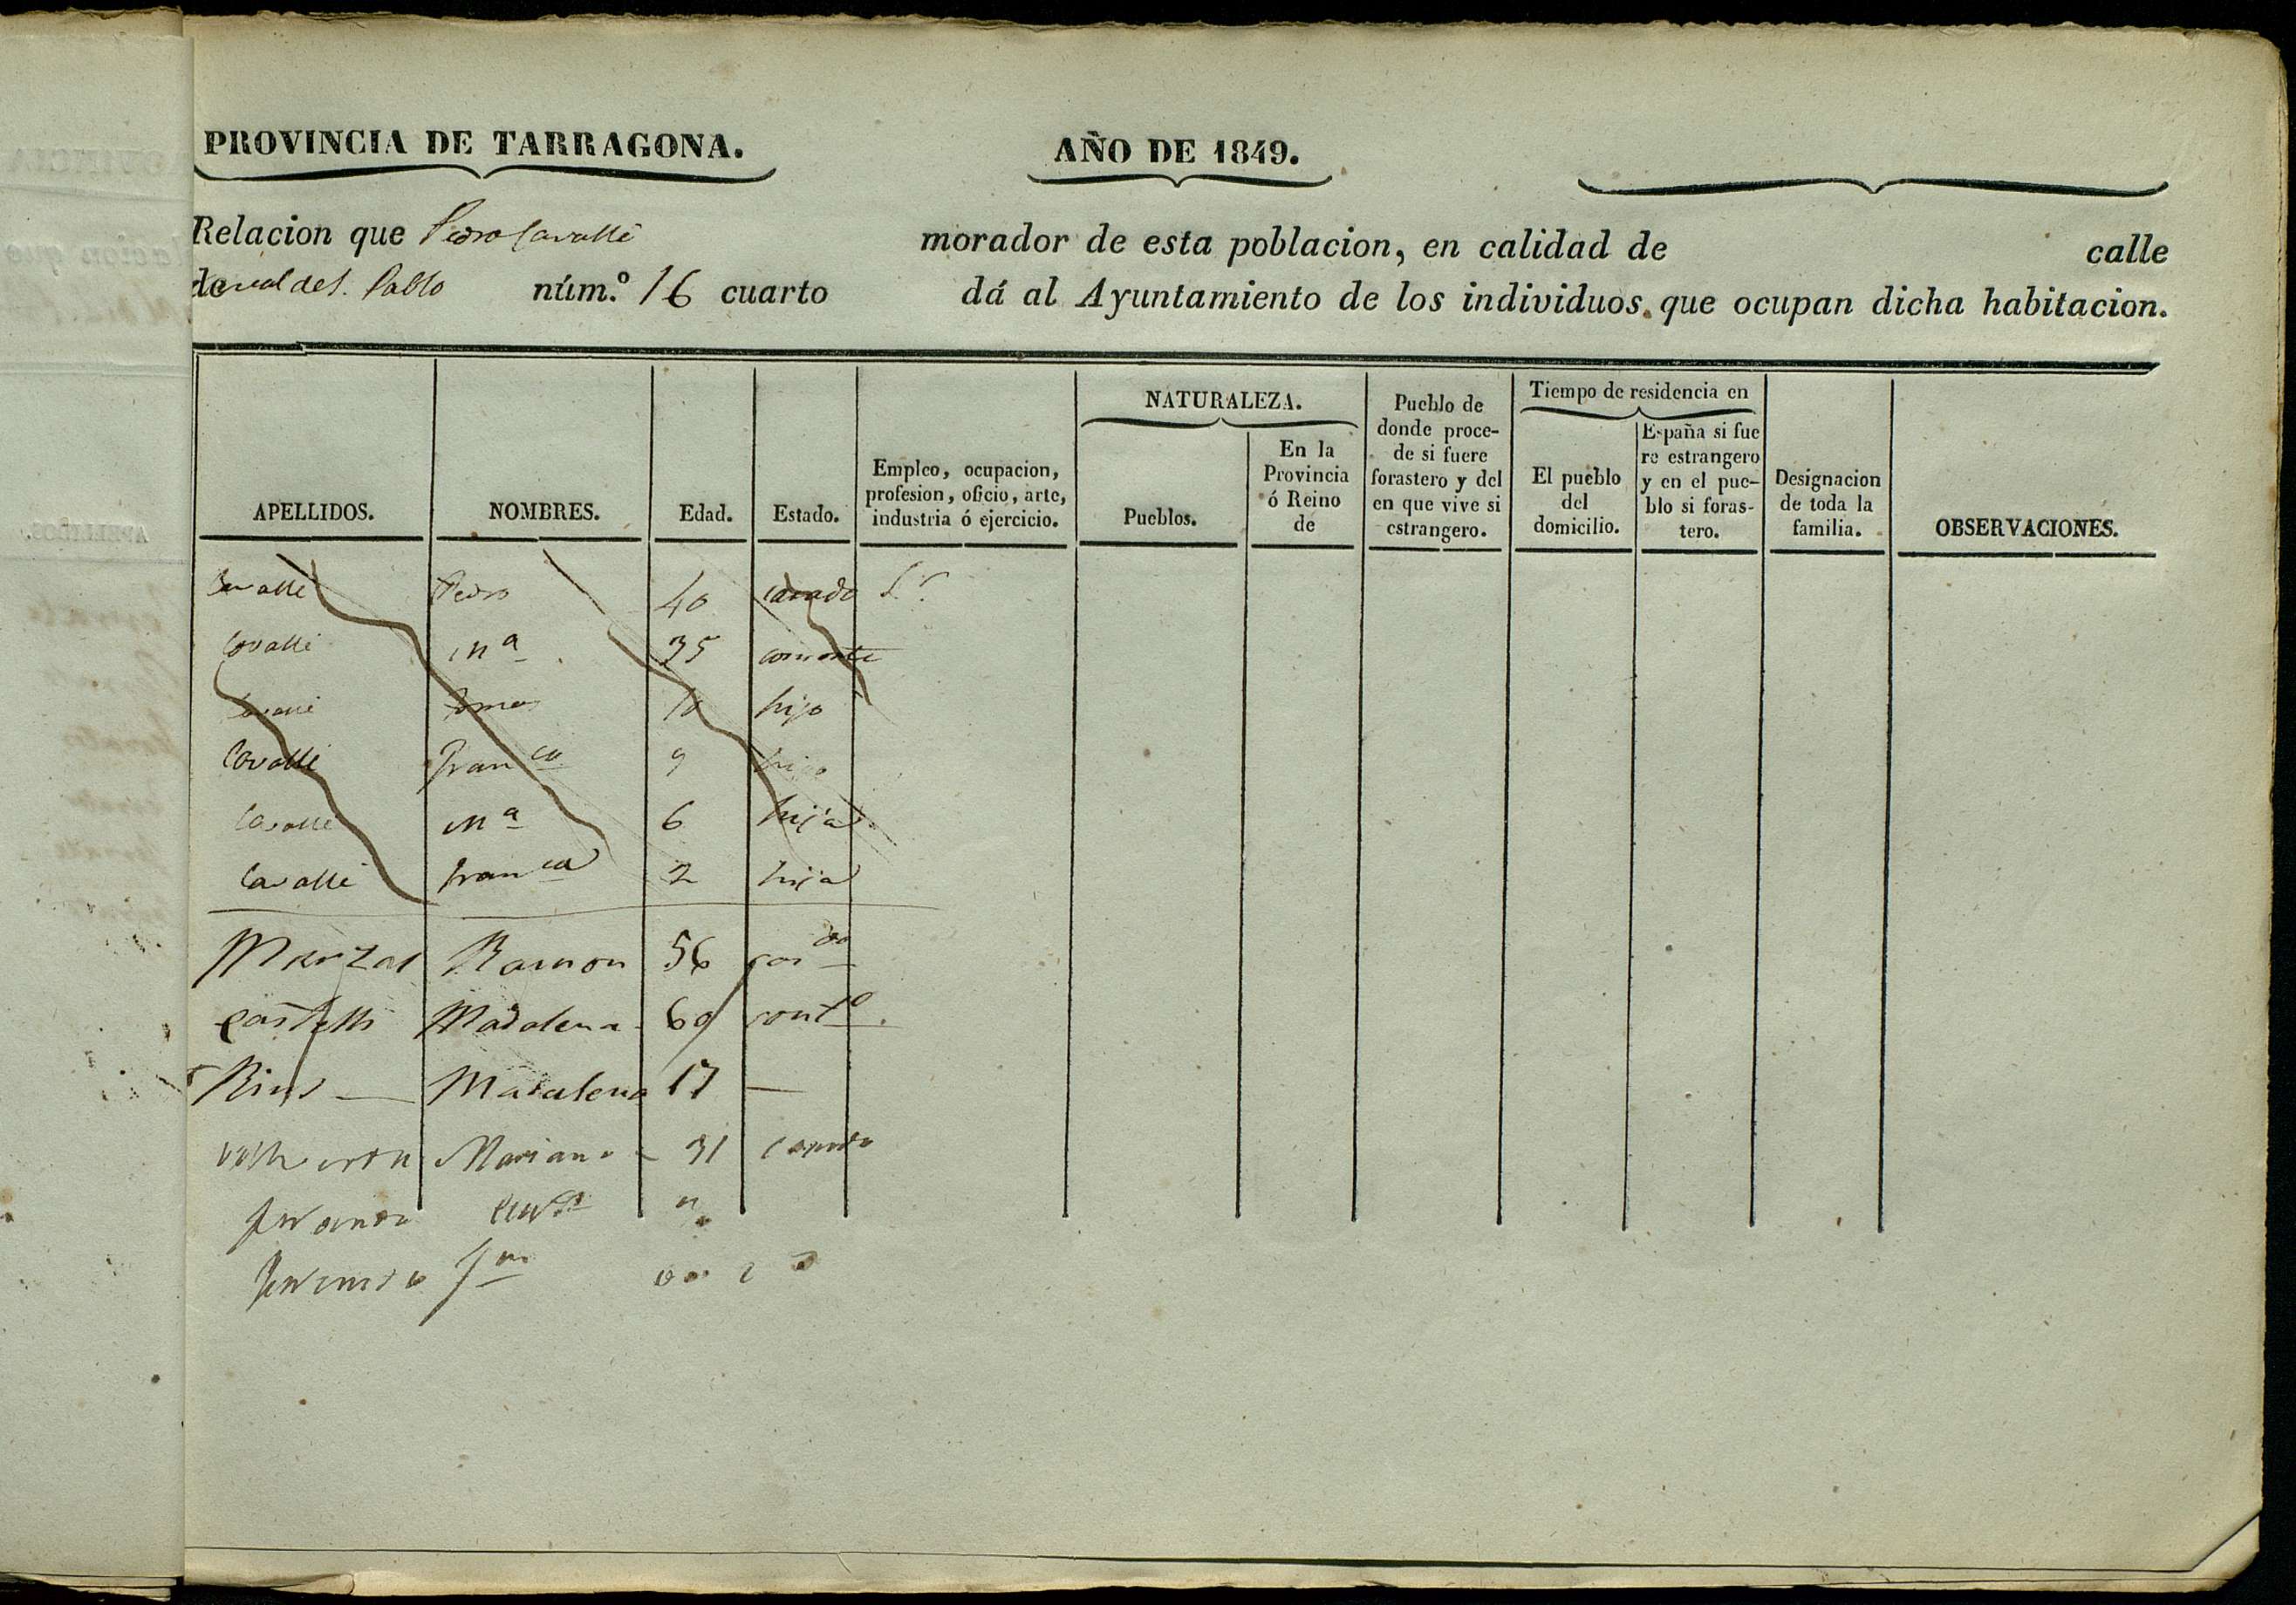 PROVINCIA DE TARRAGONA. AÑO DE 1849.
Relacion que Pedro Cavallé morador de esta poblacion, en calidad de calle
de Pablo núm.º 16 cuarto dá al Ayuntamiento de los individuos que ocupan dicha habitacion.
APELLIDOS. NOMBRES. Edad. Estado. Empleo, ocupacion, profesion, oficio, arte, industria ó ejercicio. NATURALEZA. Pueblos. En la Provincia ó Reino de Pueblo de donde proce-de si fuere forastero y del en que vive si estrangero. Tiempo de residencia en El pueblo del domicilio. España si fue re estrangero y en el pue-blo si foras-tero. Designacion de toda la familia. OBSERVACIONES.
Cavallé Pedro 40 casado
Cavallé Mª 35 consorte
Cavallé 10 hijo
Cavallé Franco 9 hijo
Cavallé Mª 6 hija
Cavallé Franca 2 hija
Ramon 56 casdo
Castells Madalena 60
Rius Madalena 17 —
Mariano 31 casado